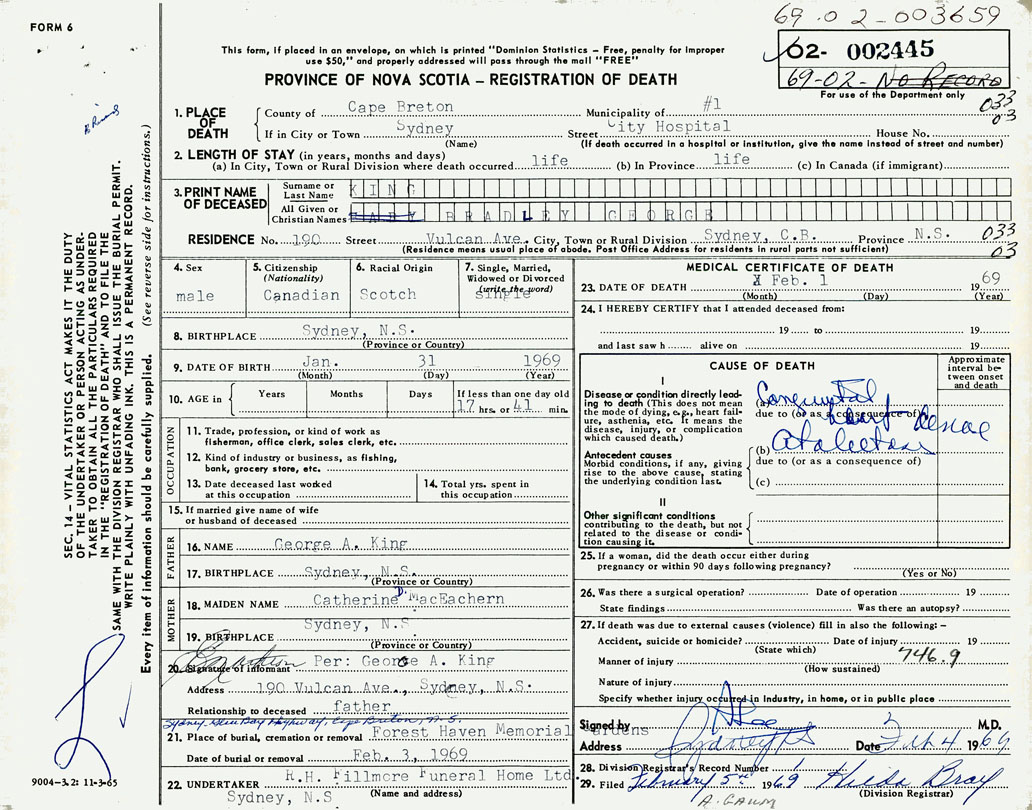 FORM 6
69-02-003659
02- 002445
69-02- NO RECORD
For use of the Department only
This form, if placed in an envelope, on which is printed "Dominion Statistics - Free, penalty for improper
use $50," and properly addressed will pass through the mail "FREE"
PROVINCE OF NOVA SCOTIA - REGISTRATION OF DEATH
033
03
1. PLACE OF DEATH
County of Cape Breton Municipality of #1
If in City or Town Sydney Street City Hospital House No.
(Name) (If death occurred in a hospital or institution, give the name instead of street and number)
2. LENGTH OF STAY (in years, months and days)
(a) In City, Town or Rural Division where death occurred life (b) In Province life (c) In Canada (if immigrant)
3. PRINT NAME OF DECEASED
Surname or Last Name KING
All Given or Christian Names BRADLEY GEORGE
RESIDENCE No. 190 Street Vulcan Ave. City, Town or Rural Division Sydney, C.B. Province N.S. 033
(Residence means usual place of abode. Post Office Address for residents in rural parts not sufficient) 03
4. Sex
male
5. Citizenship
(Nationality)
Canadian
6. Racial Origin
Scotch
7. Single, Married,
Widowed or Divorced
(write the word)
single
8. BIRTHPLACE Sydney, N.S.
(Province or Country)
9. DATE OF BIRTH Jan. 31 1969
(Month) (Day) (Year)
10. AGE in
Years Months Days If less than one day old
17 hrs. or 41 min.
OCCUPATION
11. Trade, profession, or kind of work as
fisherman, office clerk, sales clerk, etc.
12. Kind of industry or business, as fishing,
bank, grocery store, etc.
13. Date deceased last worked
at this occupation
14. Total yrs. spent in
this occupation
15. If married give name of wife
or husband of deceased
FATHER
16. NAME George A. King
17. BIRTHPLACE Sydney, N.S.
(Province or Country)
MOTHER
18. MAIDEN NAME Catherine D. MacEachern
19. BIRTHPLACE Sydney, N.S
(Province or Country)
20. Signature of informant Per: George A. King
Address 190 Vulcan Ave., Sydney, N.S.
Relationship to deceased father
Sydney Glace Bay Highway, Cape Breton, N.S.
21. Place of burial, cremation or removal Forest Haven Memorial Gardens
Date of burial or removal Feb. 3, 1969
22. UNDERTAKER R.H. Fillmore Funeral Home Ltd.
Sydney, N.S (Name and address)
MEDICAL CERTIFICATE OF DEATH
23. DATE OF DEATH Feb. 1 1969
(Month) (Day) (Year)
24. I HEREBY CERTIFY that I attended deceased from:
19 to 19
and last saw h alive on 19
CAUSE OF DEATH
Approximate interval between onset and death
I
Disease or condition directly leading to death (This does not mean
the mode of dying, e.g., heart failure, asthenia, etc. It means the
disease, injury, or complication
which caused death.)
(a) Congenital heart disease
due to (or as a consequence of)
Antecedent causes
Morbid conditions, if any, giving
rise to the above cause, stating
the underlying condition last.
(b) Atelectasis
due to (or as a consequence of)
(c)
II
Other significant conditions
contributing to the death, but not
related to the disease or condition causing it.
25. If a woman, did the death occur either during
pregnancy or within 90 days following pregnancy?
(Yes or No)
26. Was there a surgical operation? Date of operation 19
State findings Was there an autopsy?
27. If death was due to external causes (violence) fill in also the following: -
Accident, suicide or homicide? Date of injury 19
(State which)
746.9
Manner of injury
(How sustained)
Nature of injury
Specify whether injury occurred in Industry, in home, or in public place
Signed by M.D.
Address Sydney NS Date Feb 4 1969
28. Division Registrar's Record Number
29. Filed February 5th 1969 Hilda Bray
(Division Registrar)
A. GAUM
SEC. 14 - VITAL STATISTICS ACT MAKES IT THE DUTY
OF THE UNDERTAKER OR PERSON ACTING AS UNDERTAKER TO OBTAIN ALL THE PARTICULARS REQUIRED
IN THE "REGISTRATION OF DEATH" AND TO FILE THE
SAME WITH THE DIVISION REGISTRAR WHO SHALL ISSUE THE BURIAL PERMIT.
WRITE PLAINLY WITH UNFADING INK. THIS IS A PERMANENT RECORD.
Every item of information should be carefully supplied. (See reverse side for instructions.)
9004-3.2: 11-3-65